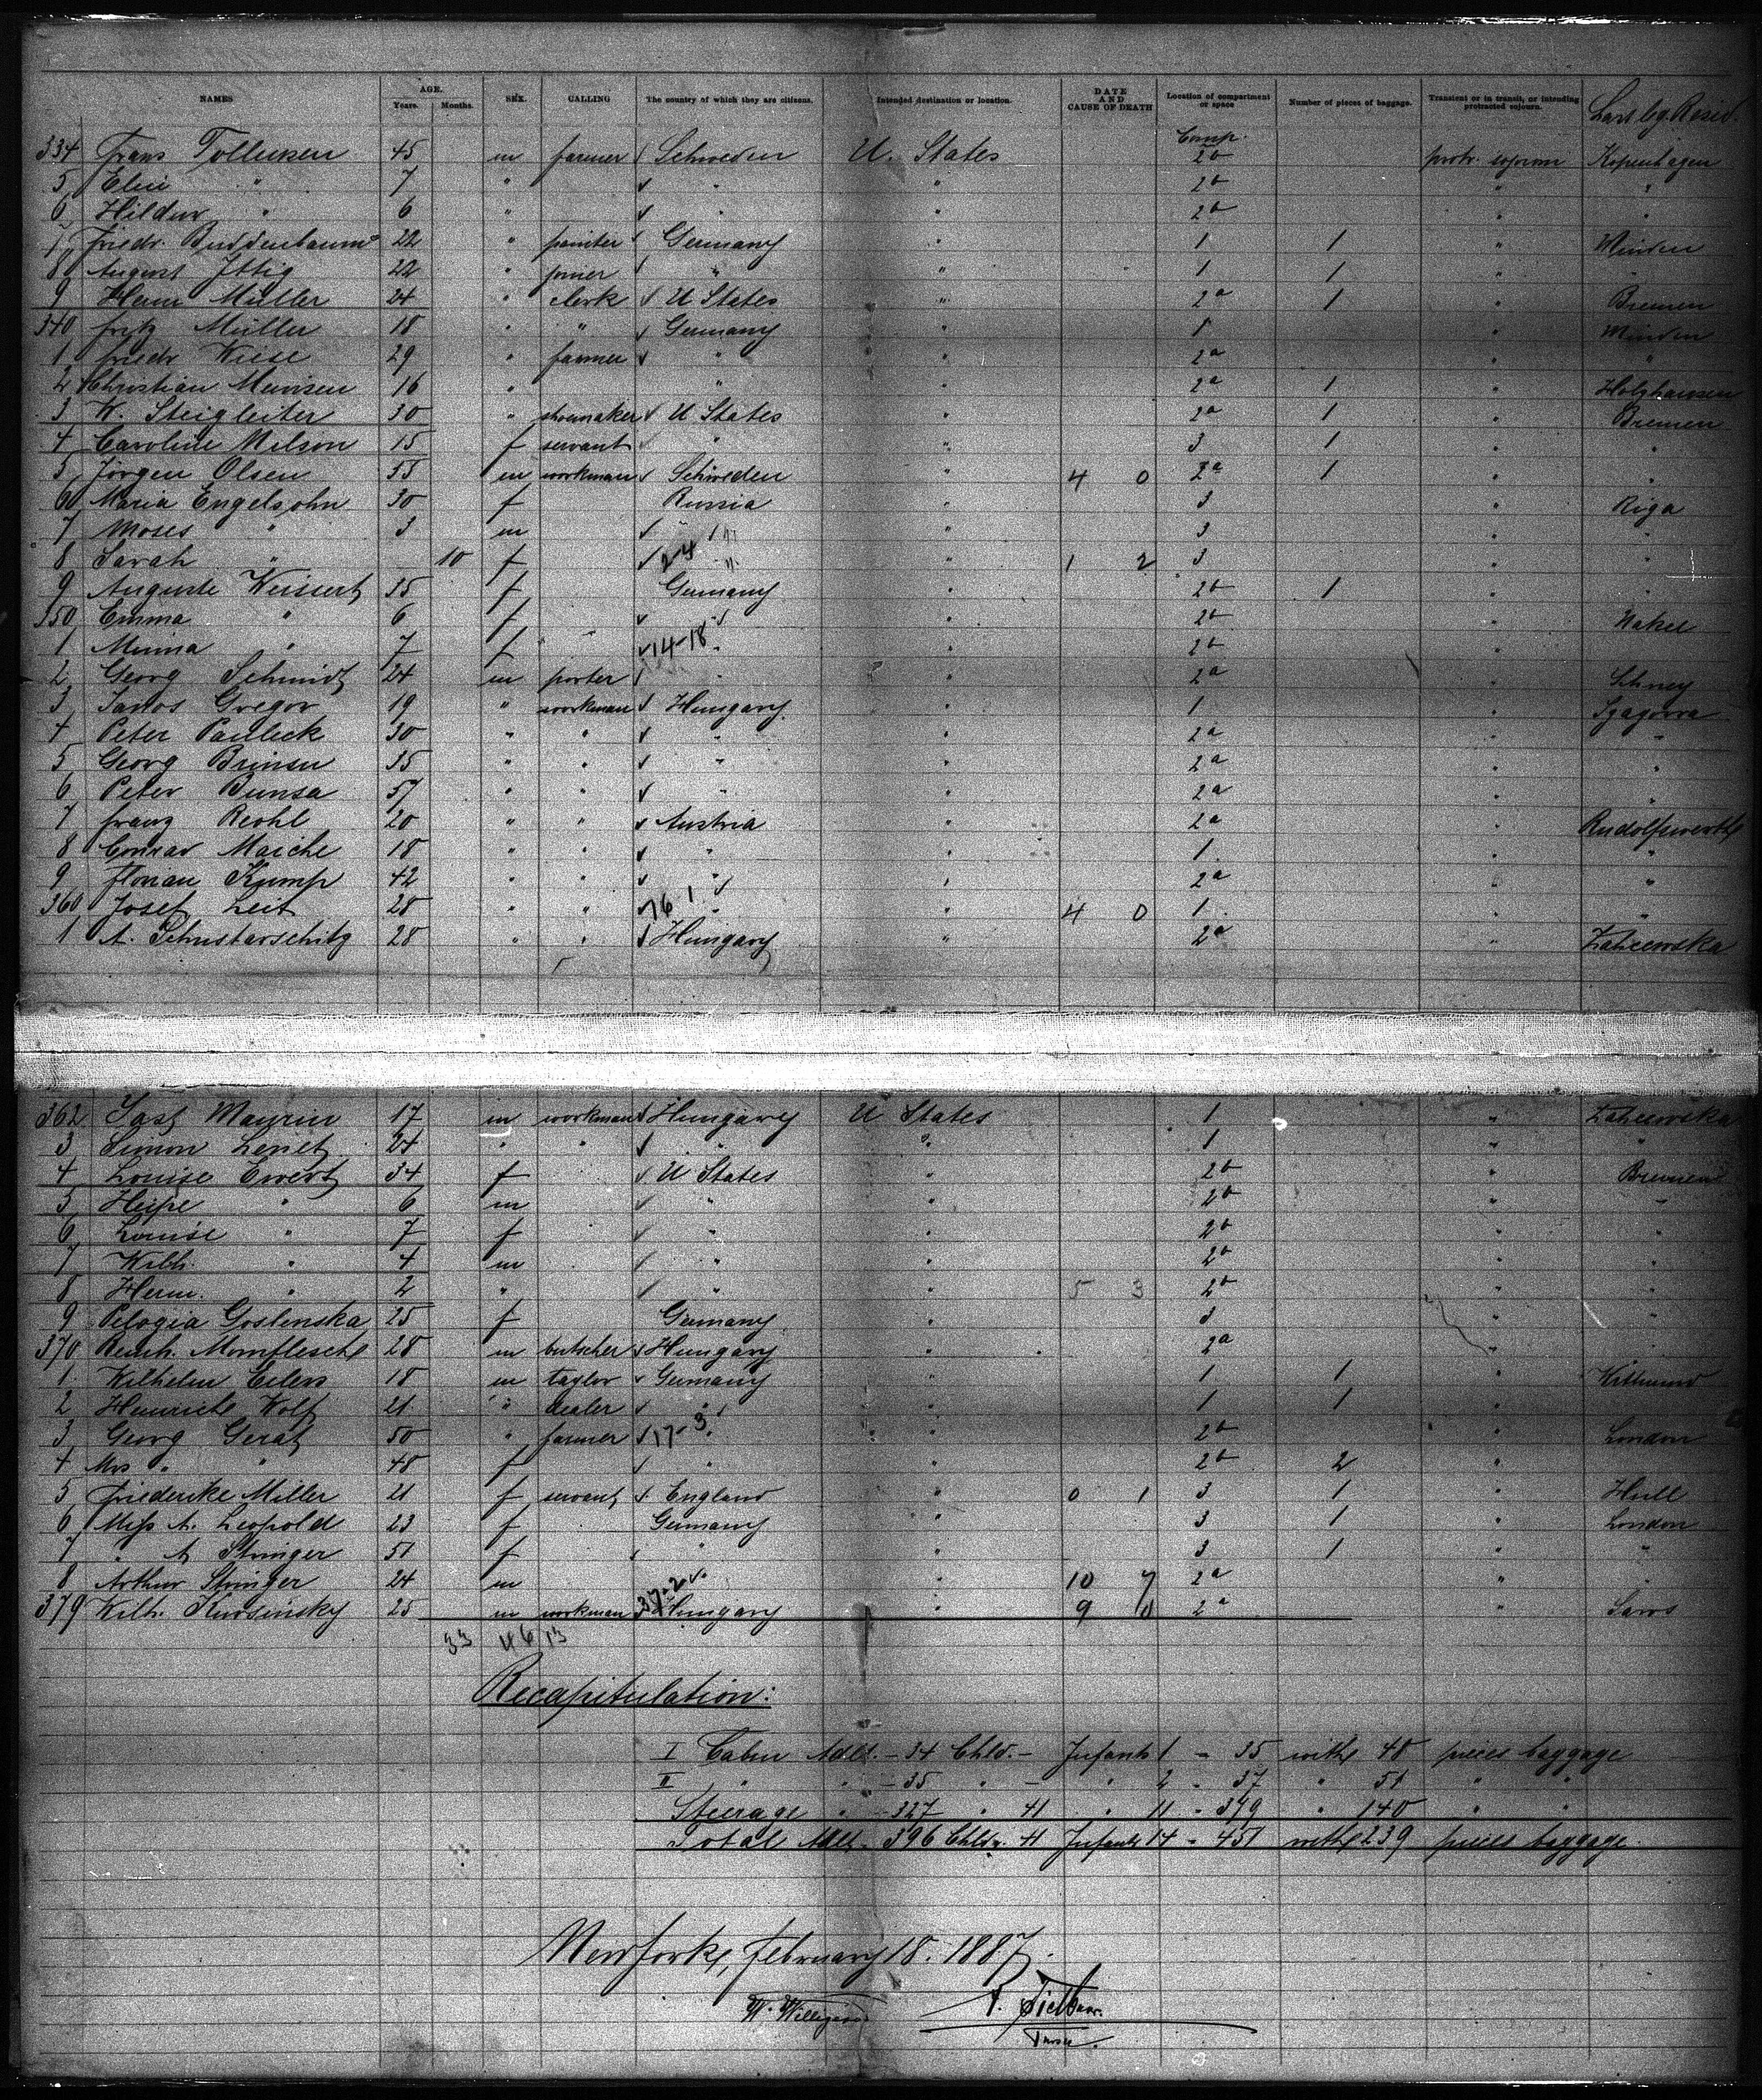 NAMES AGE. Years. Months. SEX. CALLING The country of which they are citizens. Intended destination or location. DATE AND CAUSE OF DEATH Location of compartment or space Number of pieces of baggage. Transient or in transit, or intending protracted sojourn. Last leg. Resid.
Comp.
334 Frans Tollensen 45 m farmer √ Schweden U. States 2b protr. sojourn Kopenhagen
5 " 7 " √ " " 2b " "
6 Hildur " 6 " √ " " 2b " "
7 Friedr. Buddenbaum 22 " painter √ Germany " 1 1 " Minden
8 August Ittig 22 " √ " " 1 1 "
9 Herm Müller 24 " clerk √ U States " 2a 1 " Bremen
340 Fritz Müller 18 " " √ Germany " 1 " Minden
1 Friedr Wiese 29 " farmer √ " " 2a " "
2 Christian Meinsen 16 " " " 2a 1 " Holzhausen
3 W. Steigleiter 30 " shoemaker √ U States " 2a 1 " Bremen
4 Caroline Wilson 15 f servant √ " " 3 1 " "
5 Jörgen Olsen 55 m workman √ Schweden " 4 0 2a 1 " "
6 Maria Engelsohn 30 f Russia " 3 " Riga
7 Moses " 3 m √ " " 3 " "
8 Sarah " 10 f √ 2-4 " " 1 2 3 " "
9 Auguste Weissert 35 f Germany " 2b 1 " "
350 Emma " 6 f √ " " 2b " Nakel
1 Minna " 7 f √ 14-18 " " 2b "
2 Georg Schmidt 24 m porter √ " " 2a " Schney
3 Janos Gregor 19 " workman √ Hungary " 1 "
4 Peter Pauleck 30 " " √ " " 2a " "
5 Georg Brinsu 35 " " √ " " 2a " "
6 Peter Bunsa 57 " " √ " " 2a " "
7 Franz Reohl 20 " " √ Austria " 2a " Rudolfswerth
8 Conrad Maiche 18 " " √ " " 1 " "
9 Florian Kump 42 " " √ " " 2a " "
360 Josef Leit 28 " " √ 16 1 " " 4 0 1 " "
1 A. Schustarschitz 28 " " √ Hungary " 2a " Zahcewska
362 Maurin 17 m workman √ Hungary U States 1 " Zahcewska
3 Simon Lenet 24 " " √ " " 1 " "
4 Louise Ewert 34 f √ U States " 2b " Bremen
5 " 6 m √ " " 2b " "
6 Louise " 7 f √ " " 2b " "
7 Wilh. " 4 m √ " " 2b " "
8 Herm. " 2 " √ " " 5 3 2b " "
9 Pelogia Goslenska 25 f Germany " 3 " "
370 Reinh. Mornflescht 28 m butscher √ Hungary " 2a " "
1 Wilhelm Eilers 18 m taylor √ Germany " 1 1 " Witmund
2 Heinrich Wolf 21 " dealer √ " " 1 1 "
3 Georg Gerat 50 " farmer √ 17-3 " " 2b " London
4 Mrs " " 48 f √ " " 2b 2 "
5 Friederike Miller 21 f servant √ England " 0 1 3 1 " Hull
6 Miss A. Leopold 23 f Germany " 3 1 " London
7 " A Stringer 51 f " " 3 1 " "
8 Arthur Stringer 24 m 37-2 " 10 7 2a " "
379 Wilh. Kurosinsky 25 m workman √ Hungary " 9 0 2a " Saros
33 46 13
Recapitulation:
I Cabin Adlt. - 34 Chld. - Infants 1 - 35 with 48 pieces baggage
II " " - 35 " - " 2 - 37 " 51 " "
Steerage " - 327 " 41 " 11 - 379 " 140 " "
Total Adlt. 396 Chldr. 41 Infants 14 - 451 with 239 pieces baggage.
New York, February 18. 1887.
W. Willigerod